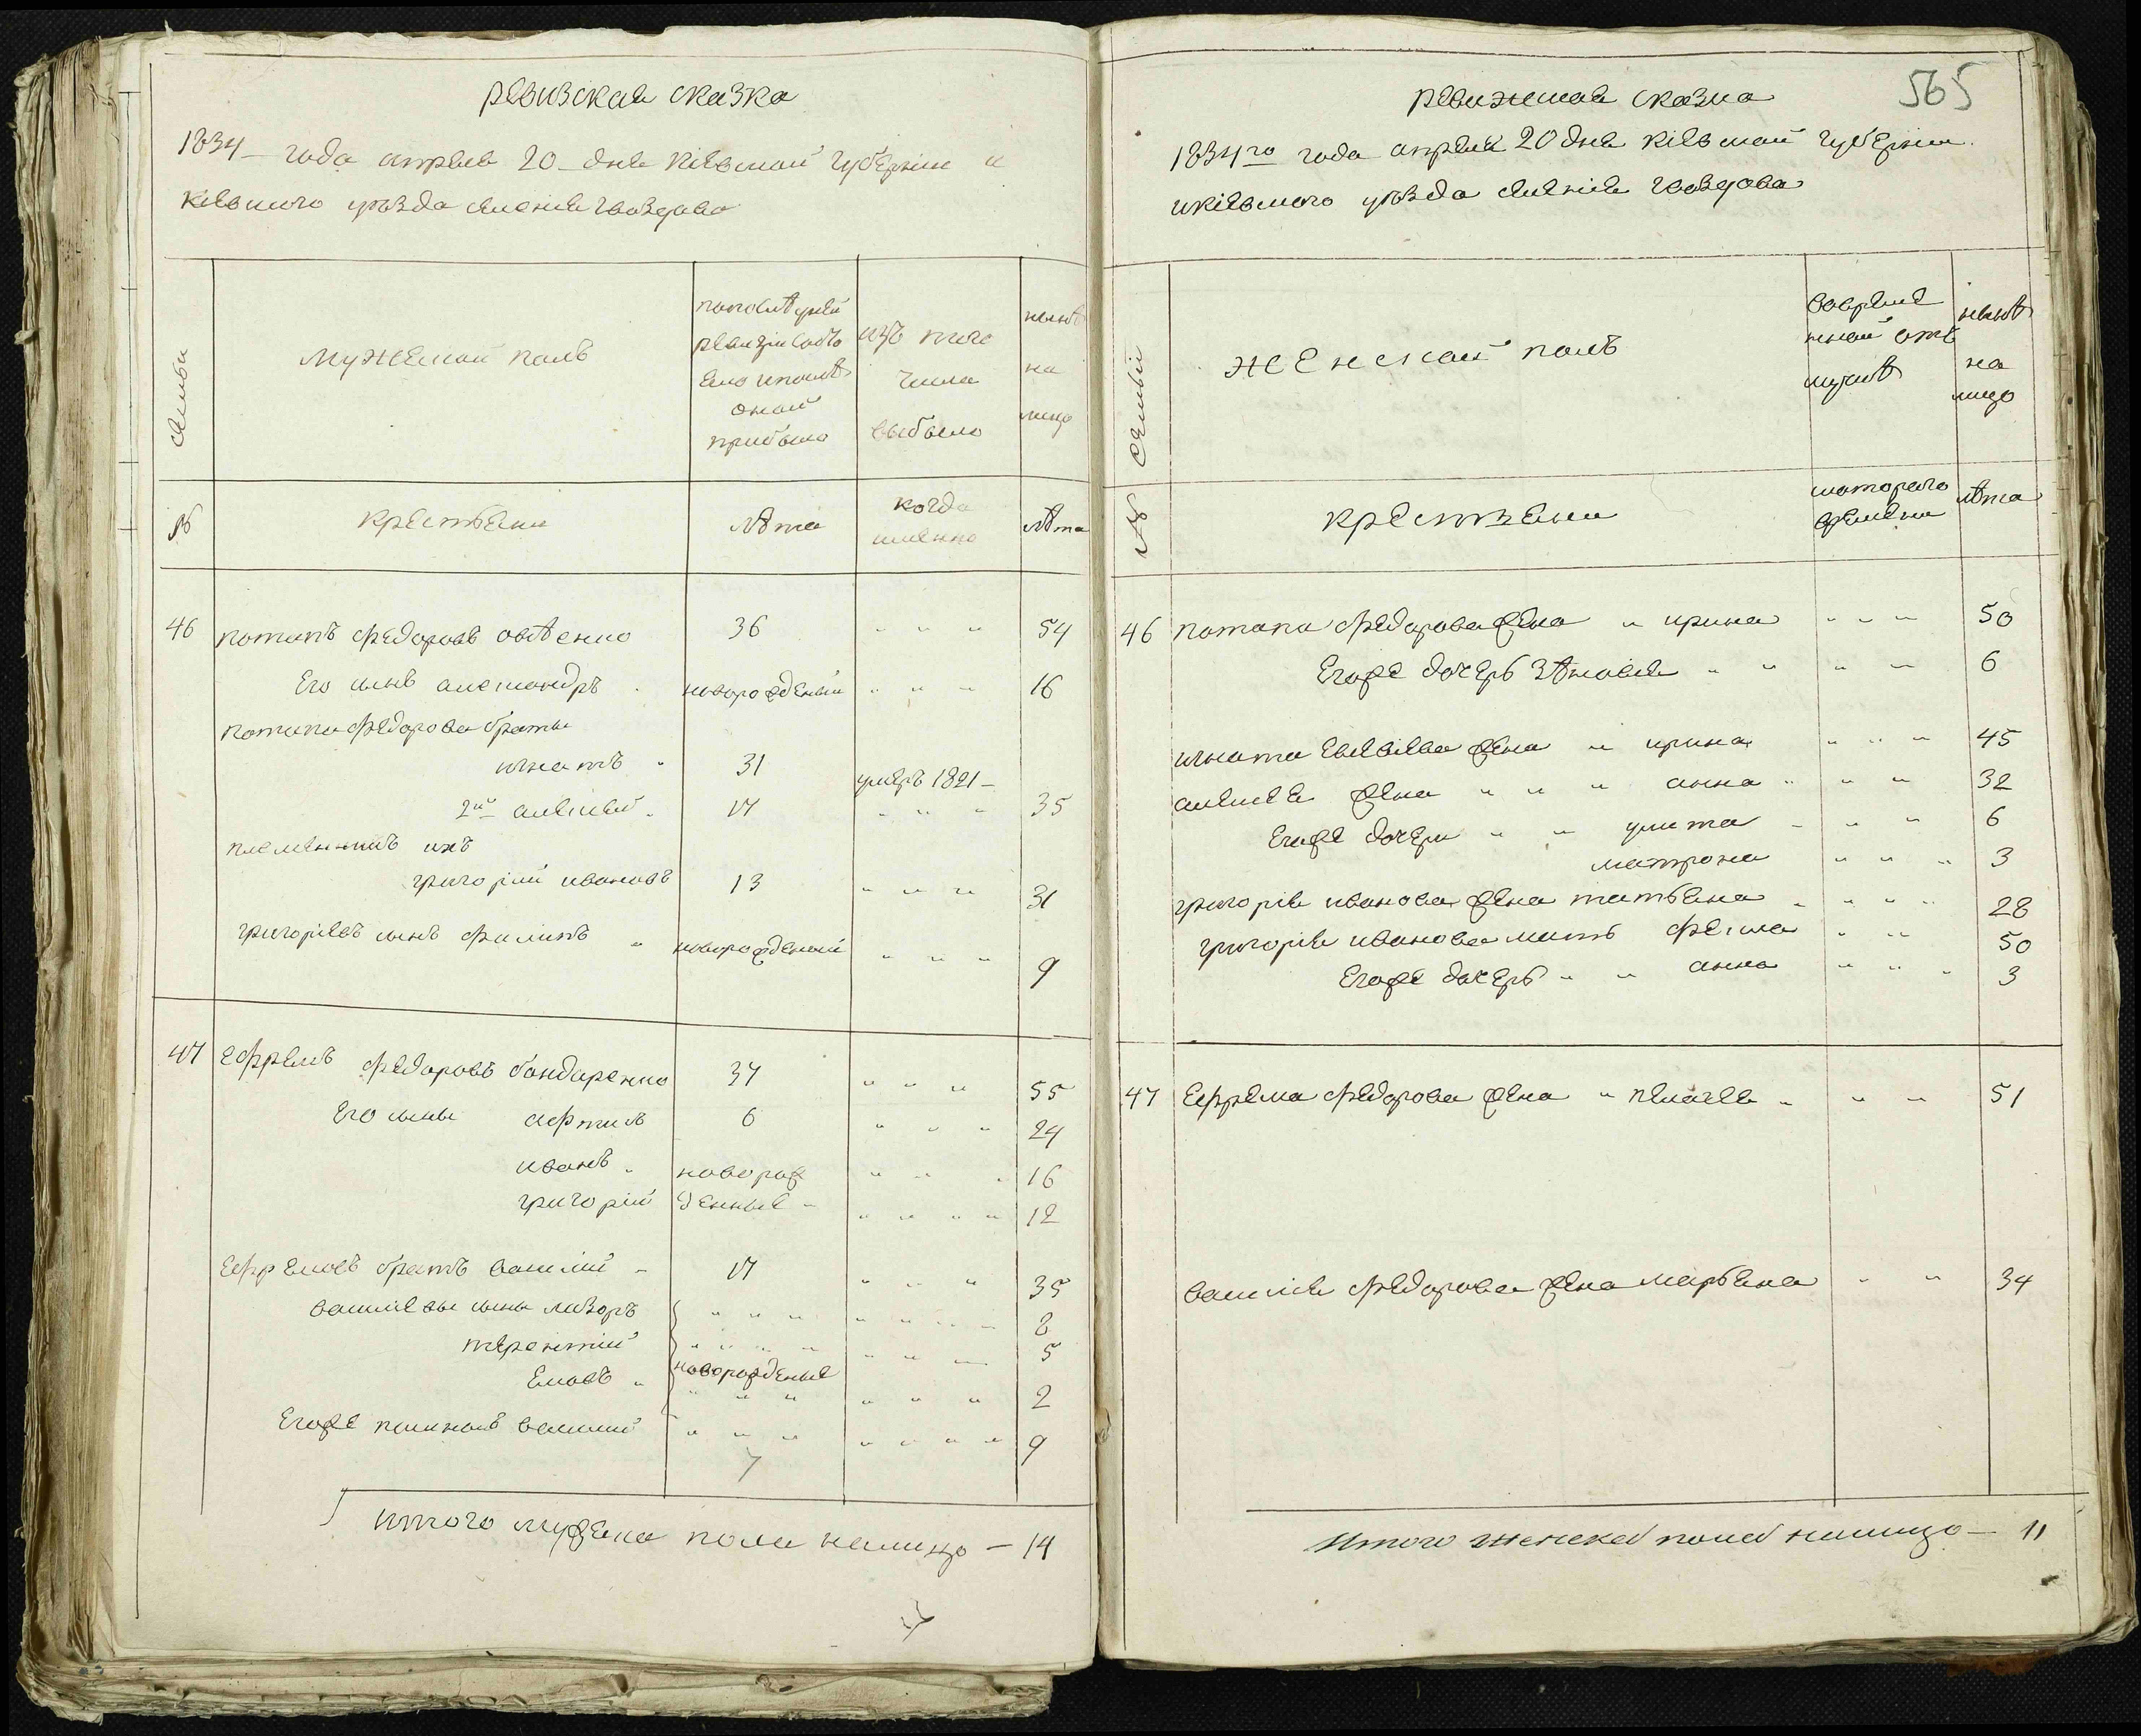 ревизская сказка
1834 года апреля 20 дня Кіевской губерніи и
Кіевского уѣзда селенія Гвоздова
Семьи
мужеской полъ
по последней
ревизіи состо
яло и послѣ
оной
прибыло
изъ того
числа
выбыло
нынѣ
на
лицо
№
крестьяни
лѣта
когда
именно
лѣта
46 потапъ федоровъ 36 " " " 54
Его сынъ александръ новорожденый " " " 16
потапа федорова браты
игнатъ 31 умеръ 1821
2й алексей 17 " " " 35
племенникъ ихъ
григорій ивановъ 13 " " " 31
григоріевъ сынъ филипъ " новорожденый " " " 9
47 Ефремъ федоровъ бондаренко 37 " " " 55
Его сыны 6 " " " 24
иванъ новорож " " " 16
григорій денные " " " " 12
Ефремовъ братъ василій 17 " " " 35
василіевы сыны лазоръ " " " " " " " 8
терентій " " " " " " " 5
новорожденые " " " 2
Егоже василій " " " " " " " 9
7
итого мужеска пола налицо — 14
565
ревижская сказка
1834го года апреля 20 дня Кіевской губерніи
и Кіевского уѣзда селенія Гвоздова
№ Семьи
женской полъ
во времен
ной отъ
лучкѣ
нынѣ
на
лицо
крестьяни
с которого
времени
лѣта
46 потапа федорова жена " ирина " " " 50
Егоже дочерь зѣновія " " " " 6
игната жена " ирина " " " 45
алексея жена " " " анна " " " 32
Егоже дочери " " улита " " " 6
матрона " " " 3
григорія иванова жена татьяна " " " " 28
григорія иванова мать " " 50
Егоже дочерь " " анна " " " 3
47 Ефрема федорова жена " пелагея " " " 51
василія федорова жена марьяна " " 34
Итого женска пола налицо — 11